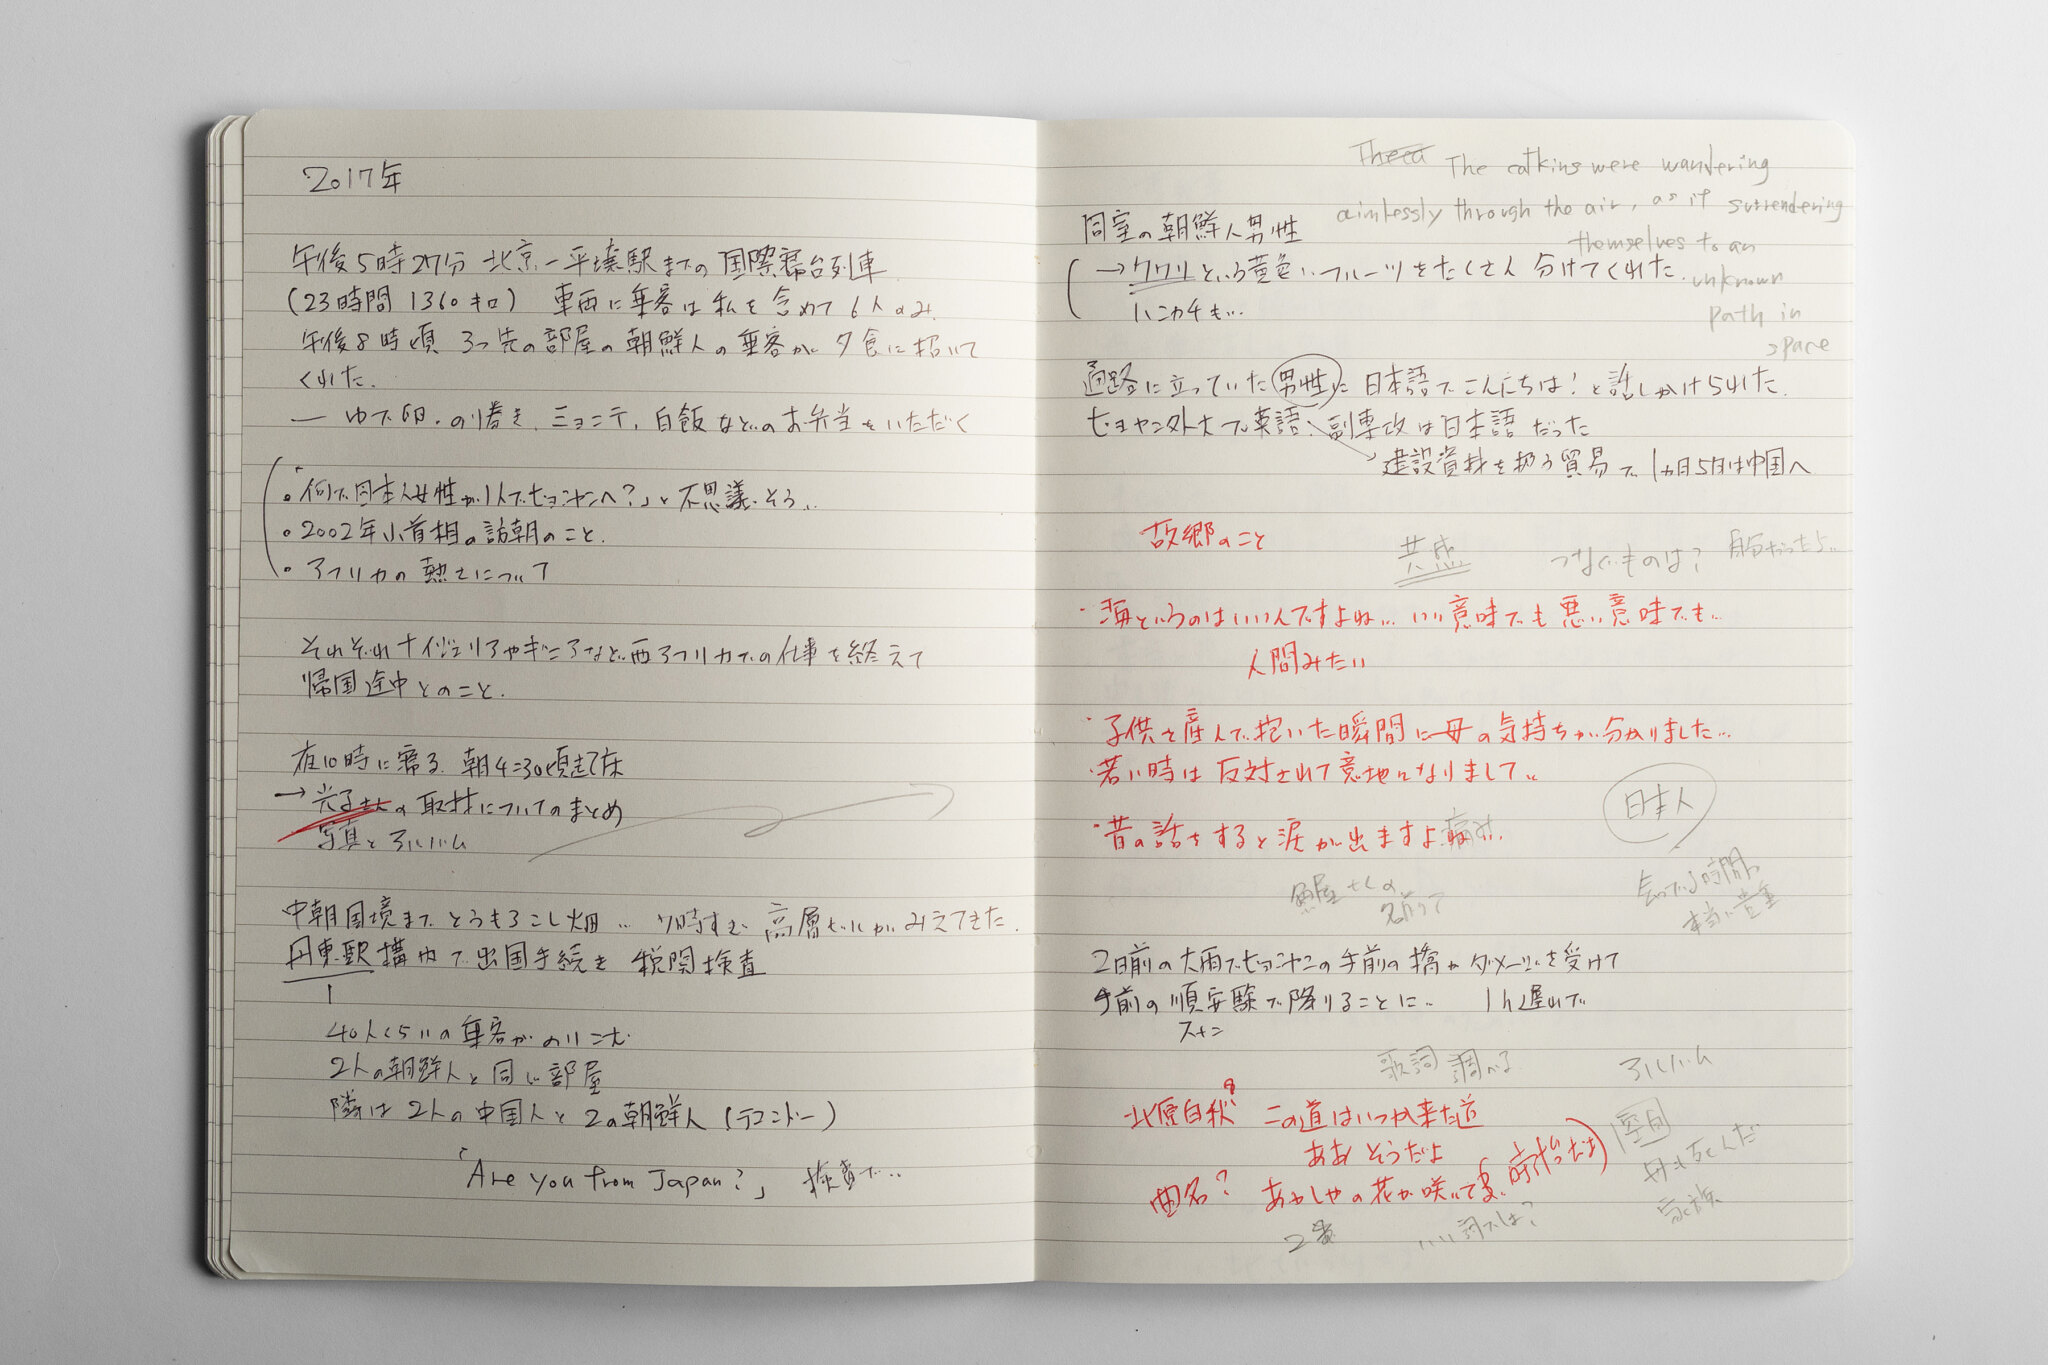 2017年
午後5時27分 北京ー平壌駅までの国際寝台列車
(23時間 1360キロ) 車両に乗客は私を含めて6人のみ.
午後8時頃 3つ先の部屋の朝鮮人の乗客が夕食に招いて
くれた.
— ゆで卵.のり巻き.ミョンテ,白飯などのお弁当をいただく
・「何で日本人女性が1人でピョンヤンへ?」と不思議そう..
・2002年小首相の訪朝のこと.
・アフリカの熱さについて
それぞれナイジェリアやギニアなど西アフリカでの仕事を終えて
帰国途中とのこと.
夜10時に寝る. 朝4:30頃起床
→ 光子さんの取材についてのまとめ
写真とアルバム
中朝国境までとうもろこし畑... 7時すぎ 高層ビルがみえてきた.
丹東駅構内で出国手続き 税関検査
40人くらいの乗客がのりこむ
2人の朝鮮人と同じ部屋
隣は2人の中国人と2の朝鮮人(テコンドー)
「Are you from Japan?」 検査で..
The catkins were wandering
aimlessly through the air, as if surrendering
themselves to an
unknown
path in
space
同室の朝鮮人男性
→クワリという黄色いフルーツをたくさん分けてくれた.
ハニカチも...
通路に立っていた男性に日本語でこんにちは!と話しかけられた.
ピョンヤン外大で英語、副専攻は日本語だった
→建設資材を扱う貿易で1カ月5日は中国へ
故郷のこと
共感 つなぐものは? 自分だったら..
・海というのはいいんですよね... いい意味でも悪い意味でも..
人間みたい
・子供を産んで抱いた瞬間に母の気持ちが分かりました...
・若い時は反対されて意地になりまして..
日本人
・昔の話をすると涙が出ますよね... 痛み
魚屋さんの
名前って
会っている時間
本当に貴重
2日前の大雨でピョンヤンの手前の橋がダメージを受けて
手前の順安駅で降りることに.. 1h遅れで
スナン
歌詞調べる アルバム
北原白秋? この道はいつか来た道
ああ そうだよ
曲名? あかしやの花が咲いてる.
空白
母も死んだ
家族
2番 いい詞では?